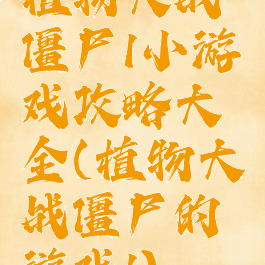 植物大战
僵尸1小游
戏攻略大
全(植物大
战僵尸的
游戏1)